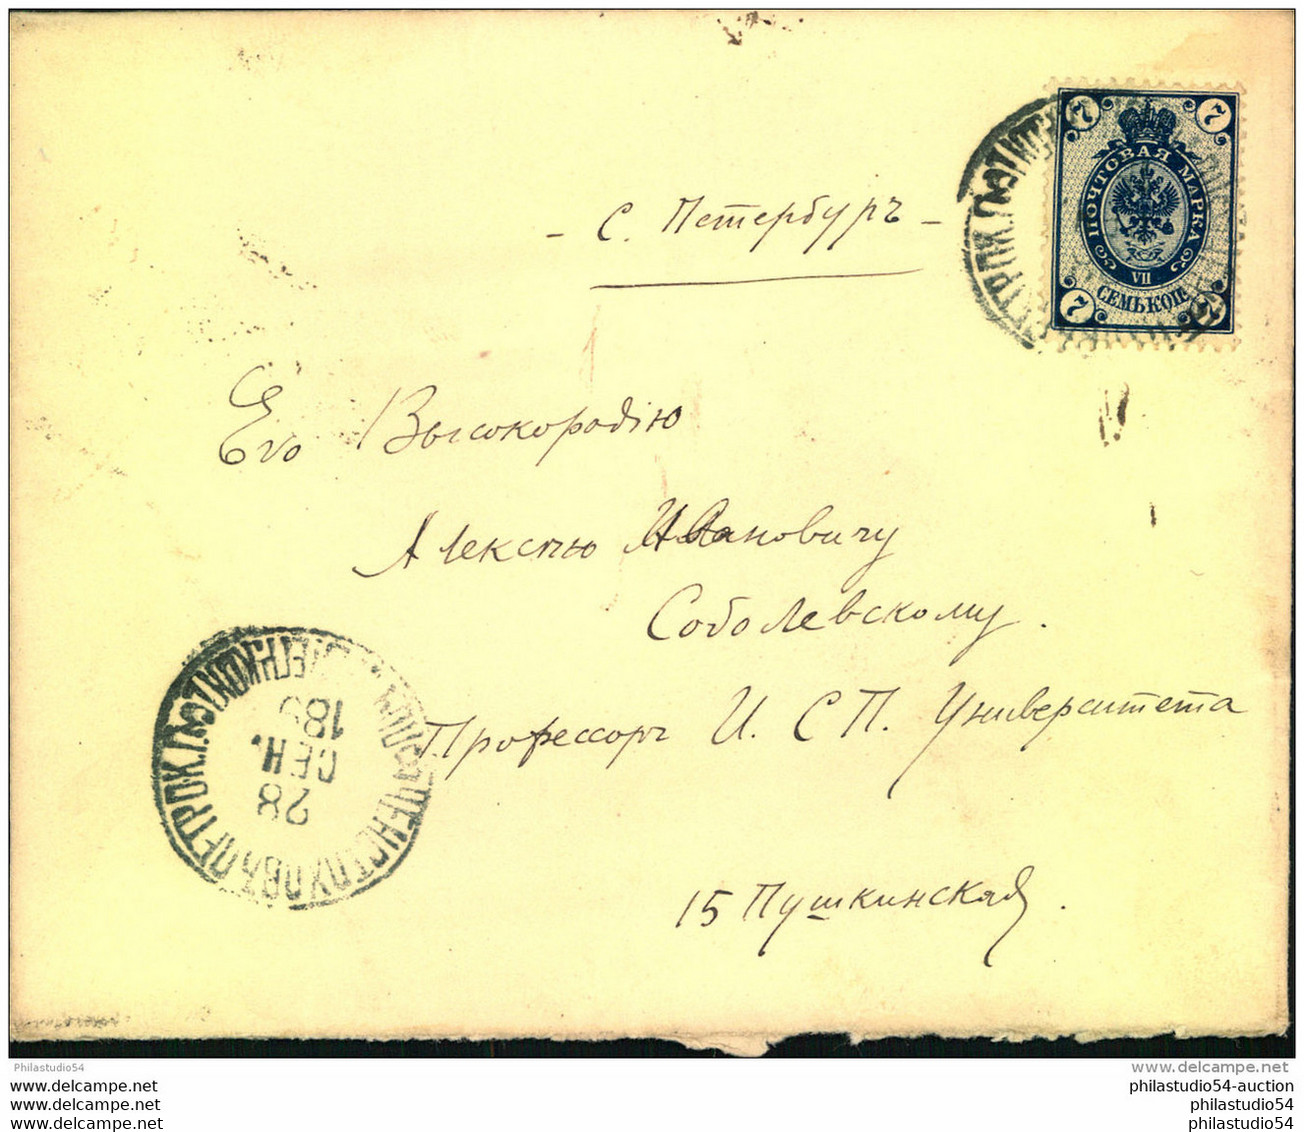 7 7
ПОЧТОВАЯ МАРКА
VII
СЕМЬ КОП.
7 7
- С. Петербургъ -
Его Высокородію
Алексѣю Ивановичу
Соболевскому.
Профессоръ И. С П. Университета
15 Пушкинская.
28
СЕН.
189
Philastudio54
www.delcampe.net
www.delcampe.net
www.delcampe.net
www.delcampe.net
philastudio54-auction
philastudio54
philastudio54